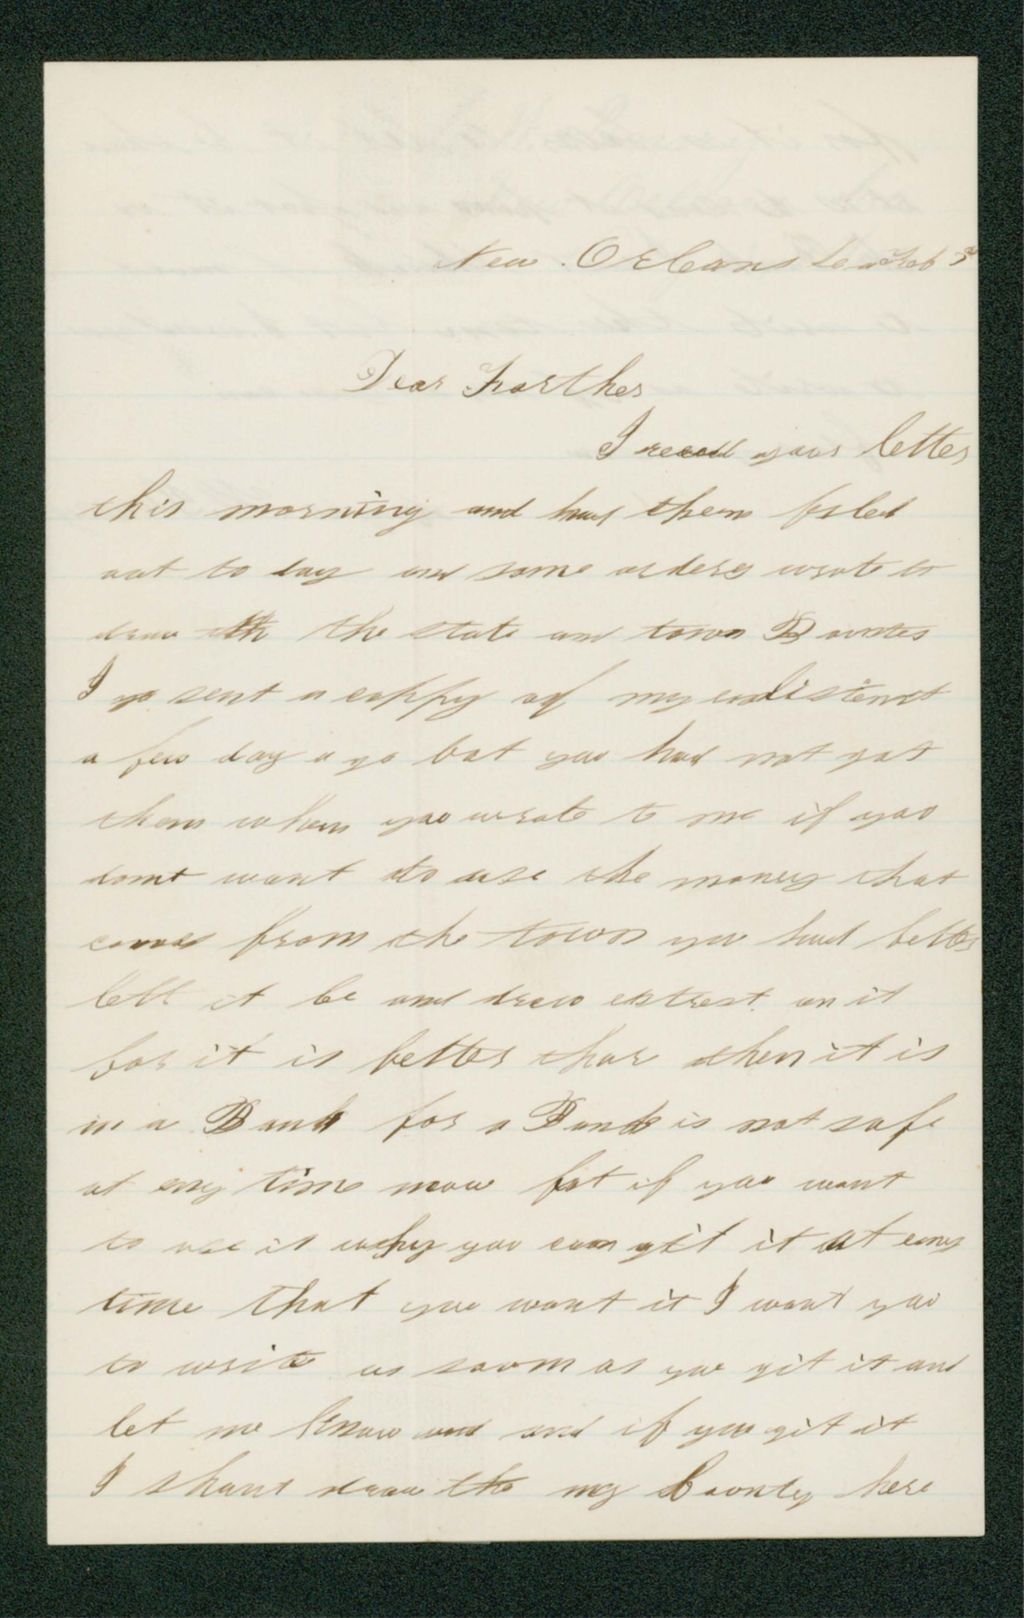 New Orleans La Feb 3
Dear Farther
I recd your letter
this morning and had them filed
out to day and some orders wrote to
draw the state and town Bountes
I sent a coppy of my enlistemnt
a few day a go but you had not got
them when you wrote to me if you
dont want to use the money that
comes from the town you had better
lett it be and drew intrest on it
for it is better thar then it is
in a Bank for a Bank is not safe
at eny time now fot if you want
to use it why you can git it at eny
time that you want it I want you
to write as soom as you git it and
let me know and and if you git it
I shant draw the my Bounty here